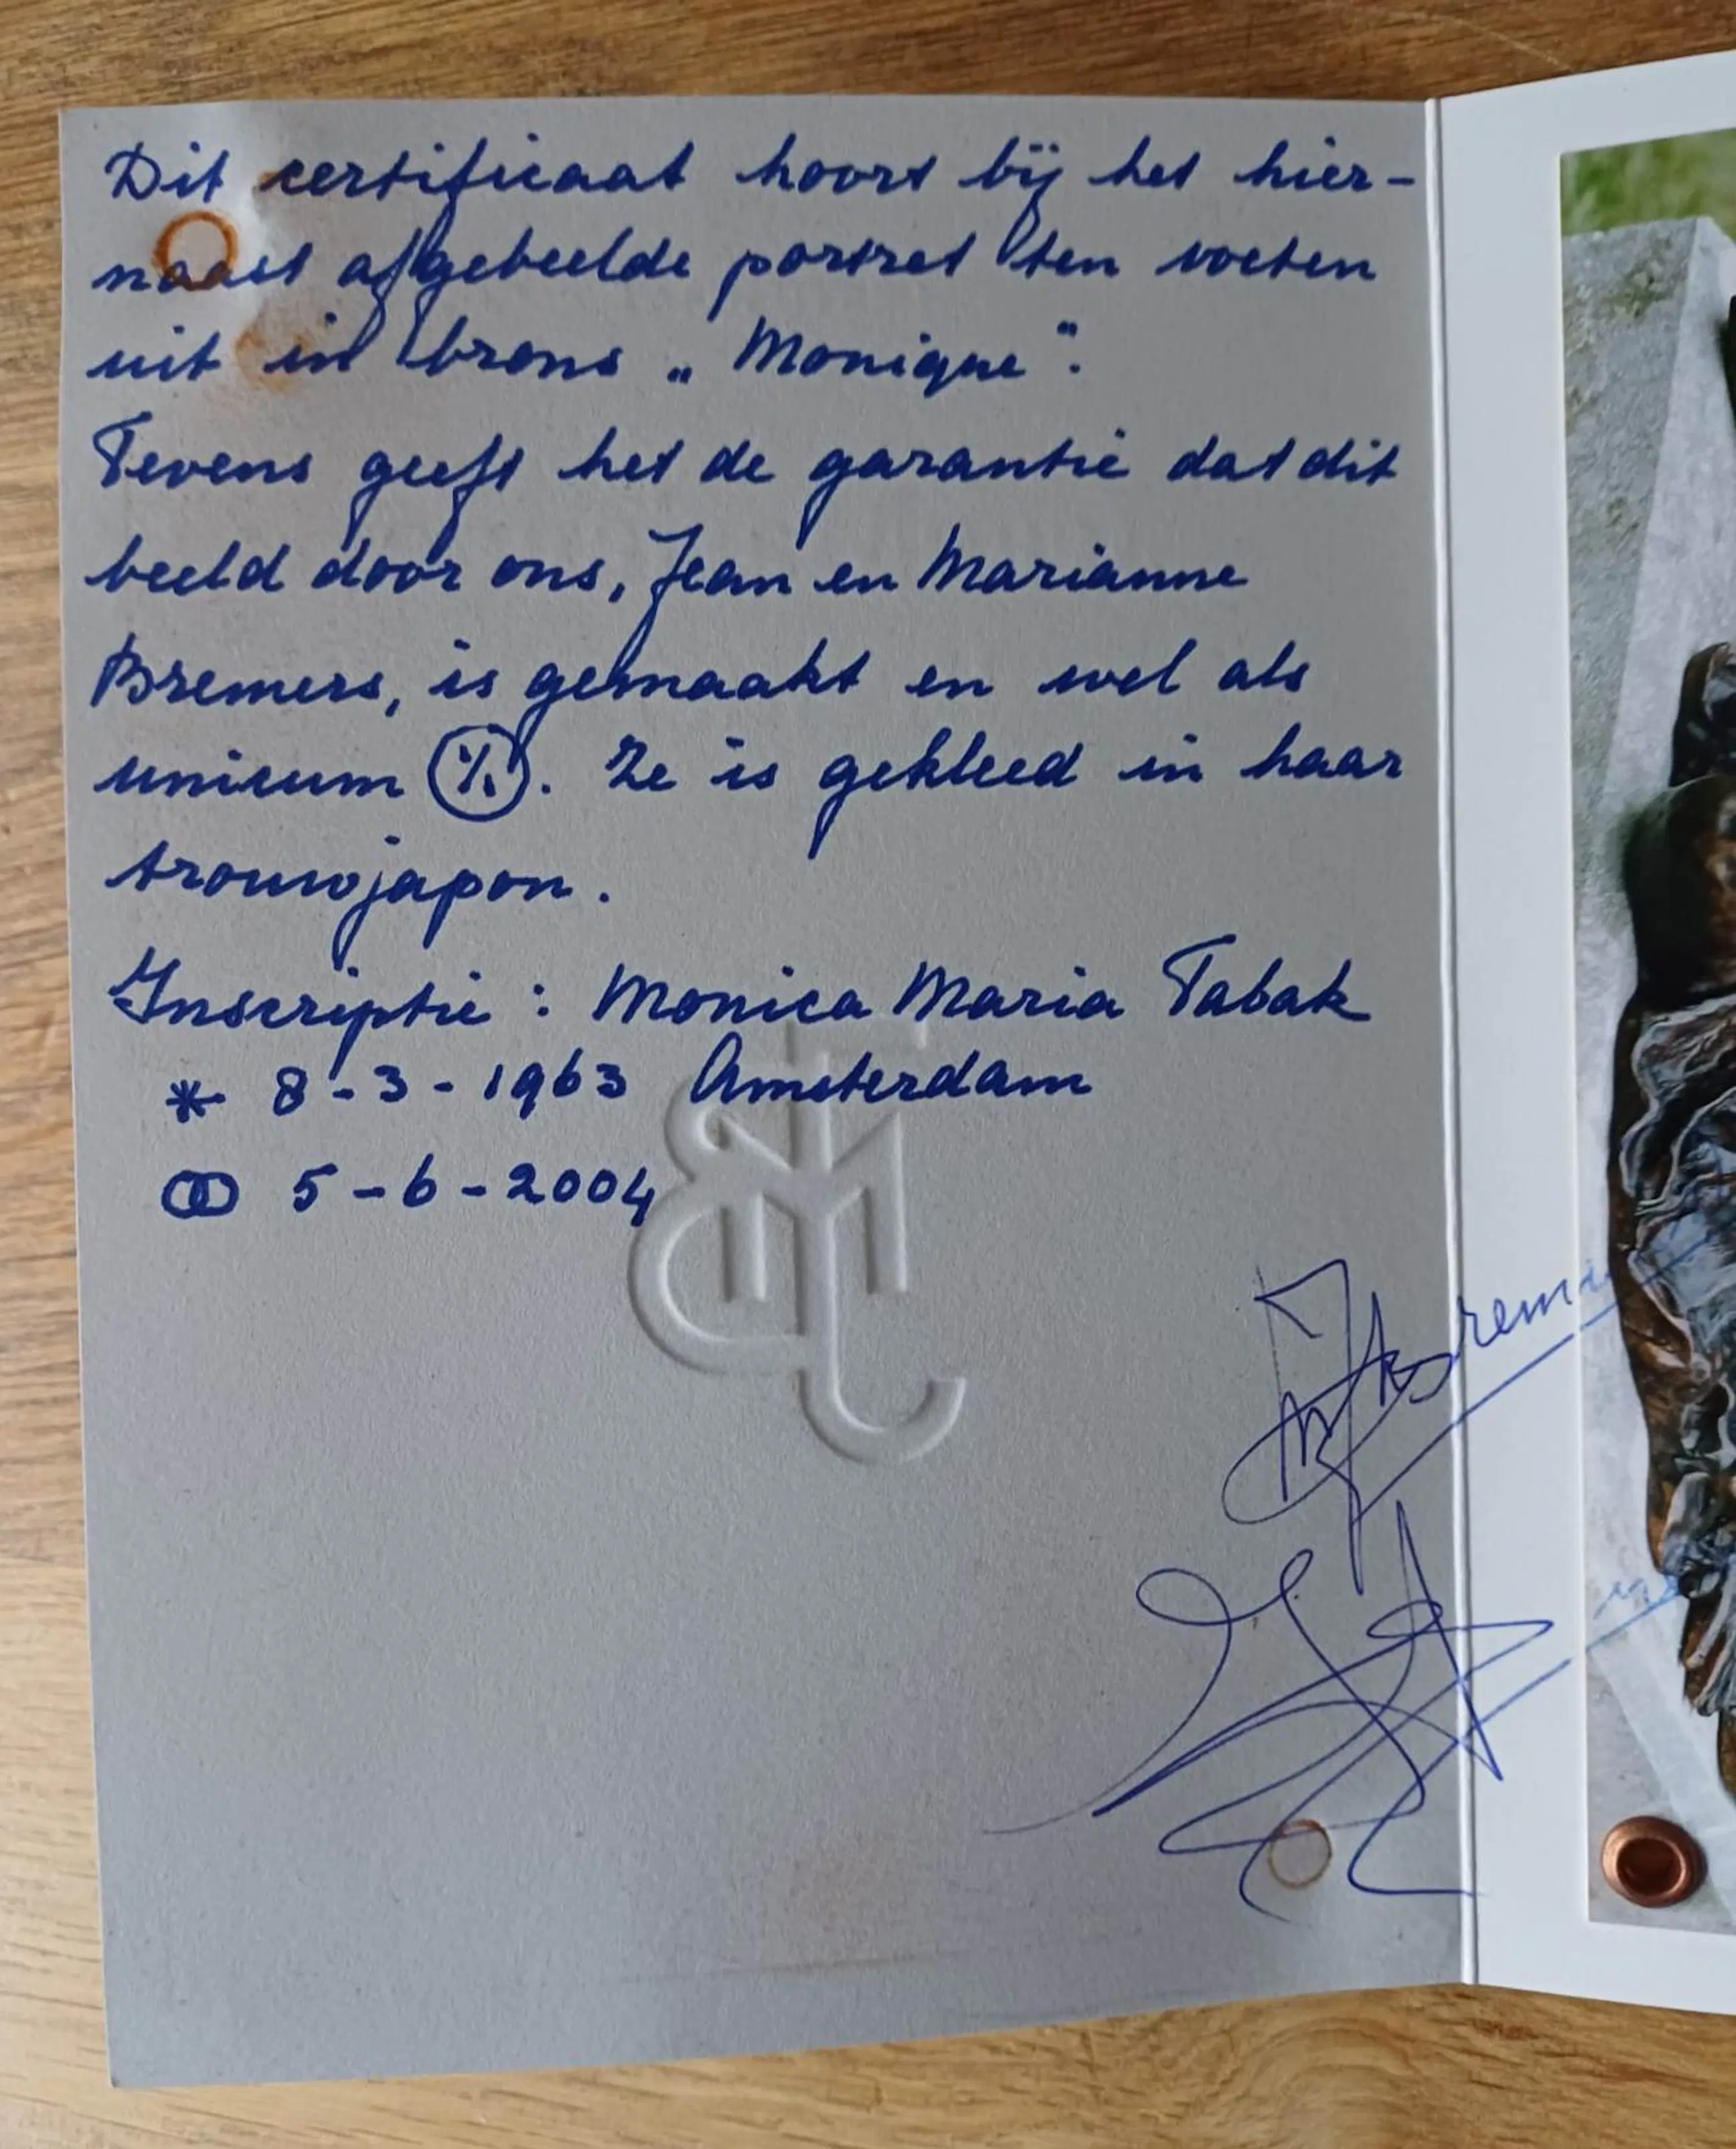 Dit certificaat hoort bij het hier-
naast afgebeelde portret ten voeten
uit in brons „Monique".
Tevens geeft het de garantie dat dit
beeld door ons, Jean en Marianne
Bremers, is gemaakt en wel als
unicum (1/1). Ze is gekleed in haar
trouwjapon.
Inscriptie : Monica Maria Tabak
* 8-3-1963 Amsterdam
⚭ 5-6-2004